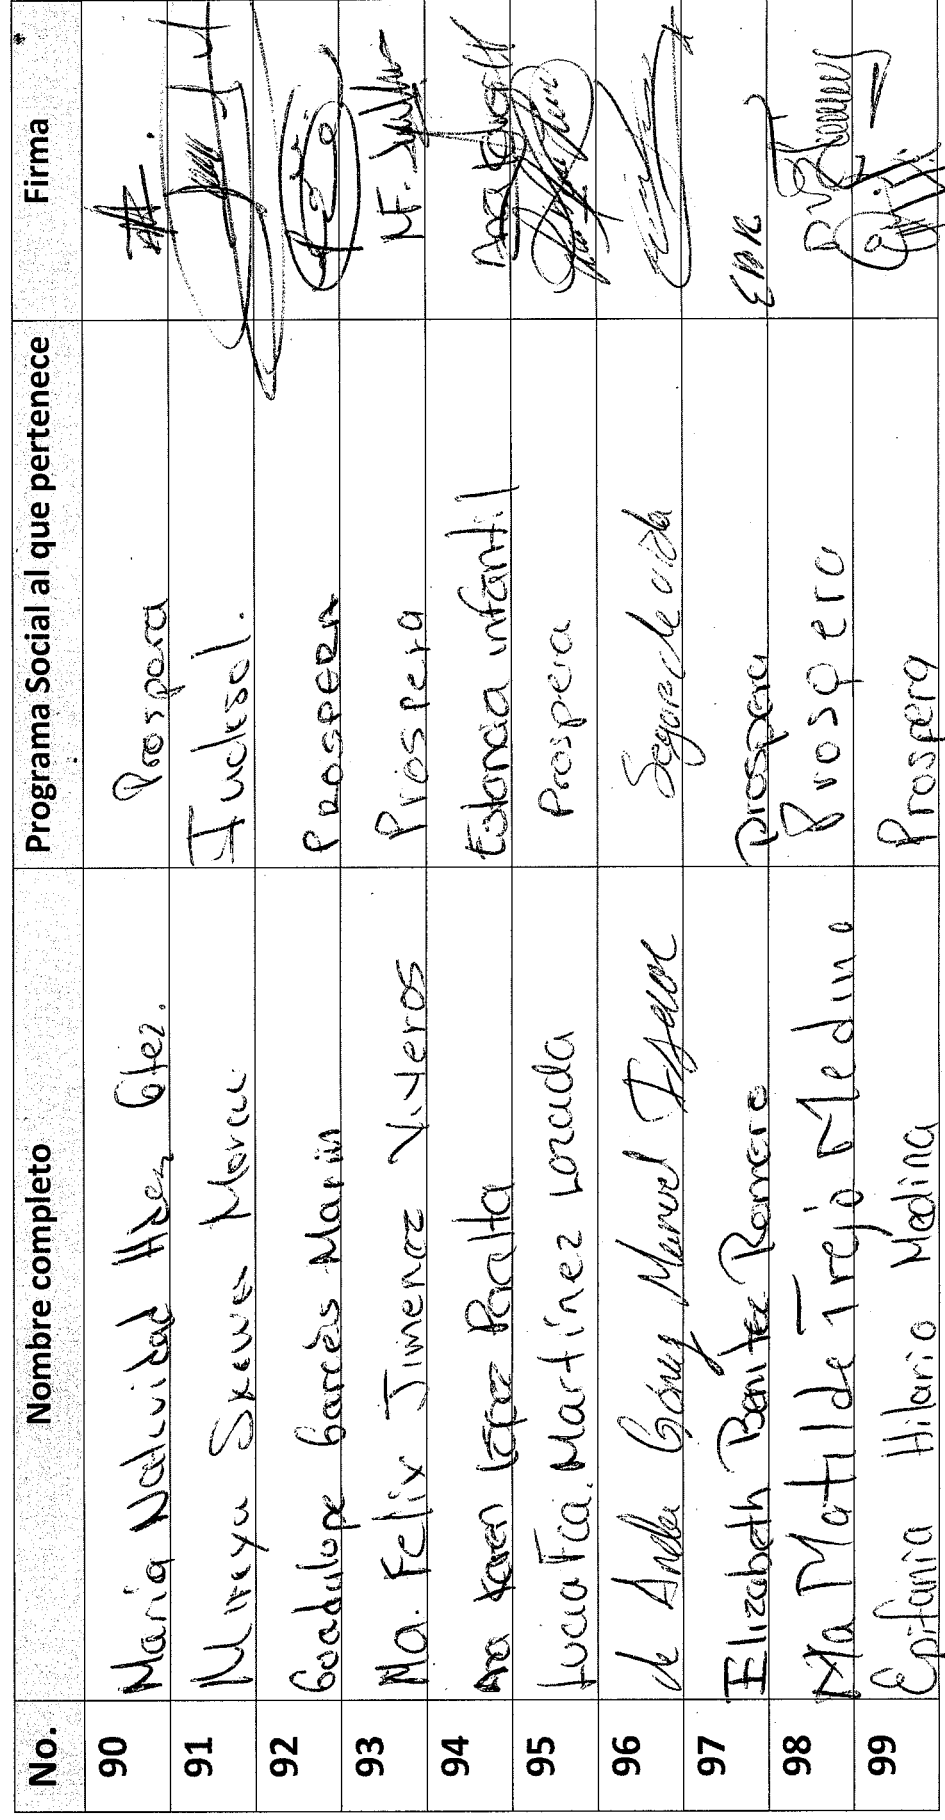 No. Nombre completo Programa Social al que pertenece Firma
90 Maria Natividad Hdez Gtez. Prospera
91 Mireya Moran Indesol.
92 Guadalupe Garcés Marín PROSPERA
93 Ma. Felix Jimenez Viveros Prospera M. Felix
94 Ana Karen López Peralta Estancia infantil
95 Lucia Fca. Martínez Lozada Prospera
96 de Anda Gómez Manuel Isaac Seguro de vida
97 Elizabeth Benitez Romero Prospera EBR
98 Ma Matilde Trejo Medina Prospera
99 Epifania Hilario Medina Prospera